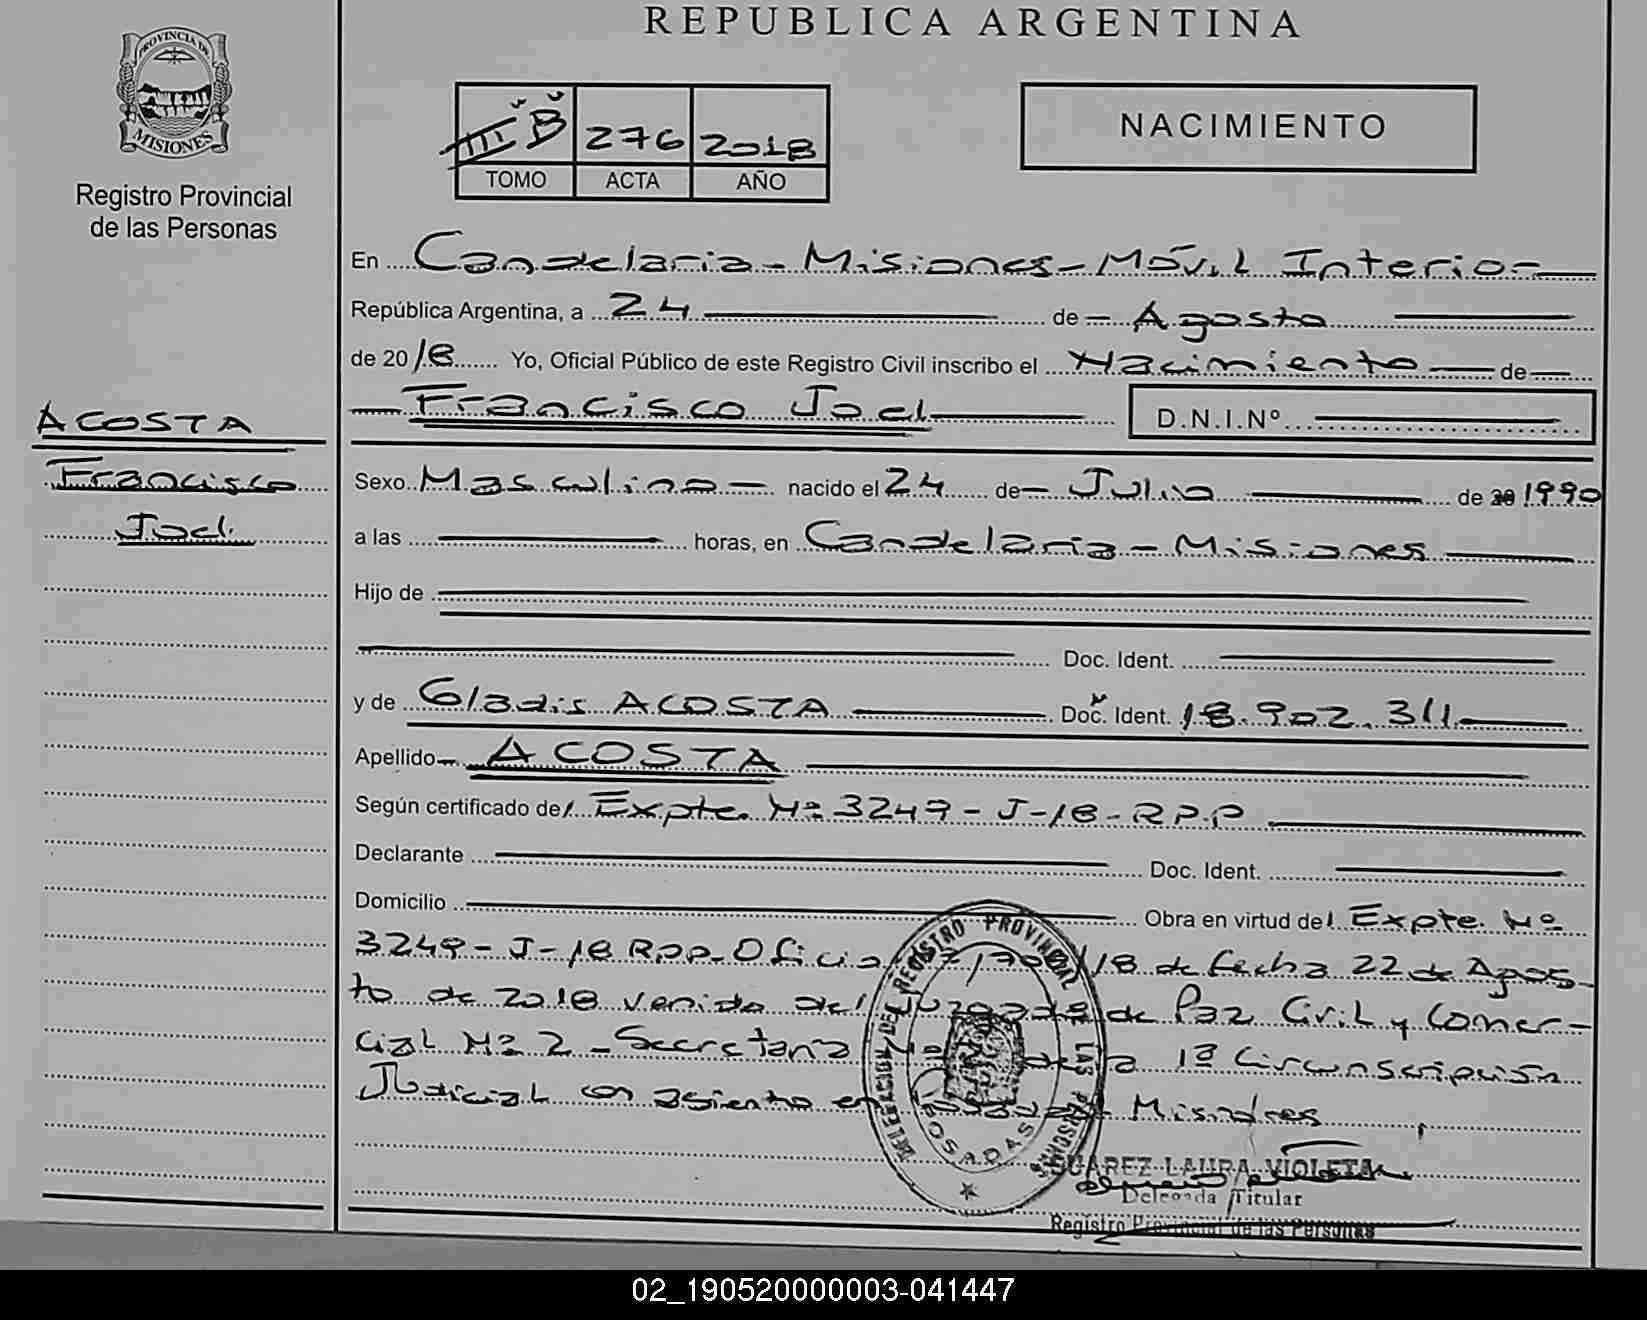 REPUBLICA ARGENTINA
PROVINCIA DE
MISIONES
Registro Provincial
de las Personas
B 276 2018
TOMO ACTA AÑO
NACIMIENTO
En Candelaria - Misiones - Móvil Interior
República Argentina, a 24 de Agosto
de 2018 Yo, Oficial Público de este Registro Civil inscribo el Nacimiento de
Francisco Joel D.N.I.Nº
ACOSTA
Francisco
Joel.
Sexo Masculino nacido el 24 de Julio de 20 1990
a las horas, en Candelaria - Misiones
Hijo de
Doc. Ident.
y de Gladis ACOSTA Doc. Ident. 18.902.311
Apellido ACOSTA
Según certificado de/. Expte. Nº 3249 - J-18-RPP
Declarante Doc. Ident.
Domicilio Obra en virtud del Expte. Nº
3249-J-18 RPP-Oficio /18 de fecha 22 de Agos-
to de 2018 venido del Juzgado de Paz Civil y Comer-
cial Nº 2 - Secretaria 1ª Circunscripción
Judicial con asiento en Misiones
DEL REGISTRO PROVINCIAL DE LAS PERSONAS
POSADAS
SUAREZ LAURA VIOLETA
Delegada Titular
Registro Provincial de las Personas
02_190520000003-041447